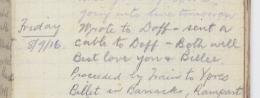 going into line tomorrow
Friday Wrote to Doff - sent a
8/9/16. cable to Doff - Both well
Best love you & Billee.
Proceeded by Train to Ypres
Billet in Barracks, Rampart